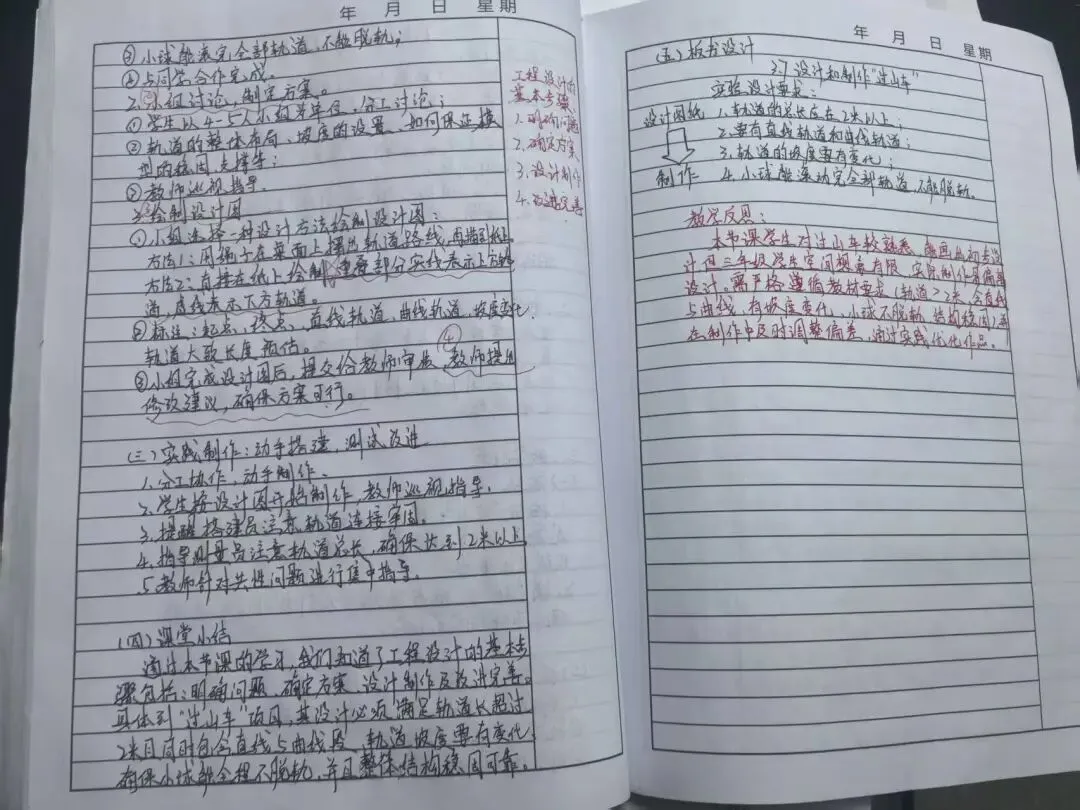 年 月 日 星期
③小球能滚完全部轨道,不能脱轨;
④与同学合作完成。
2.小组讨论,制定方案。
①学生以4-5人小组为单位,分工讨论;
②轨道的整体布局、坡度的设置、如何保证模
型的稳固,支撑等;
③教师巡视指导。
3.绘制设计图
①小组选择一种设计方法绘制设计图:
方法1:用绳子在桌面上摆出轨道路线,再描到纸上
方法2:直接在纸上绘制,重叠部分实线表示上方轨
道,虚线表示下方轨道。
②标注:起点、终点、直线轨道、曲线轨道、坡度变化
轨道大致长度预估。
④
③小组完成设计图后,提交给教师审核,教师提出
修改建议,确保方案可行。
(三)实践制作:动手搭建,测试改进
1.分工协作,动手制作。
2.学生按设计图开始制作,教师巡视指导。
3.提醒搭建员注意轨道连接牢固。
4.指导测量员注意轨道总长,确保达到2米以上
5.教师针对共性问题进行集中指导。
(四)课堂小结
通过本节课的学习,我们知道了工程设计的基本步
骤包括:明确问题、确定方案、设计制作及改进完善。
具体到“过山车”项目,其设计必须满足轨道长超过
2米且同时包含直线与曲线段,轨道坡度要有变化
确保小球能全程不脱轨,并且整体结构稳固可靠。
工程设计的
基本步骤:
1.明确问题
2.确定方案
3.设计制作
4.改进完善
年 月 日 星期
(五)板书设计
3.7设计和制作“过山车”
实验设计要求:
设计图纸 1.轨道的总长应在2米以上;
2.要有直线轨道和曲线轨道;
3.轨道的坡度要有变化;
制作 4.小球能滚动完全部轨道,不能脱轨。
教学反思:
本节课学生对过山车较熟悉,能画出初步设
计但三年级学生空间想象有限,实际制作易偏离
设计。需严格遵循教材要求(轨道>2米,含直线
与曲线,有坡度变化,小球不脱轨,结构稳固),并
在制作中及时调整偏差,通过实践优化作品。